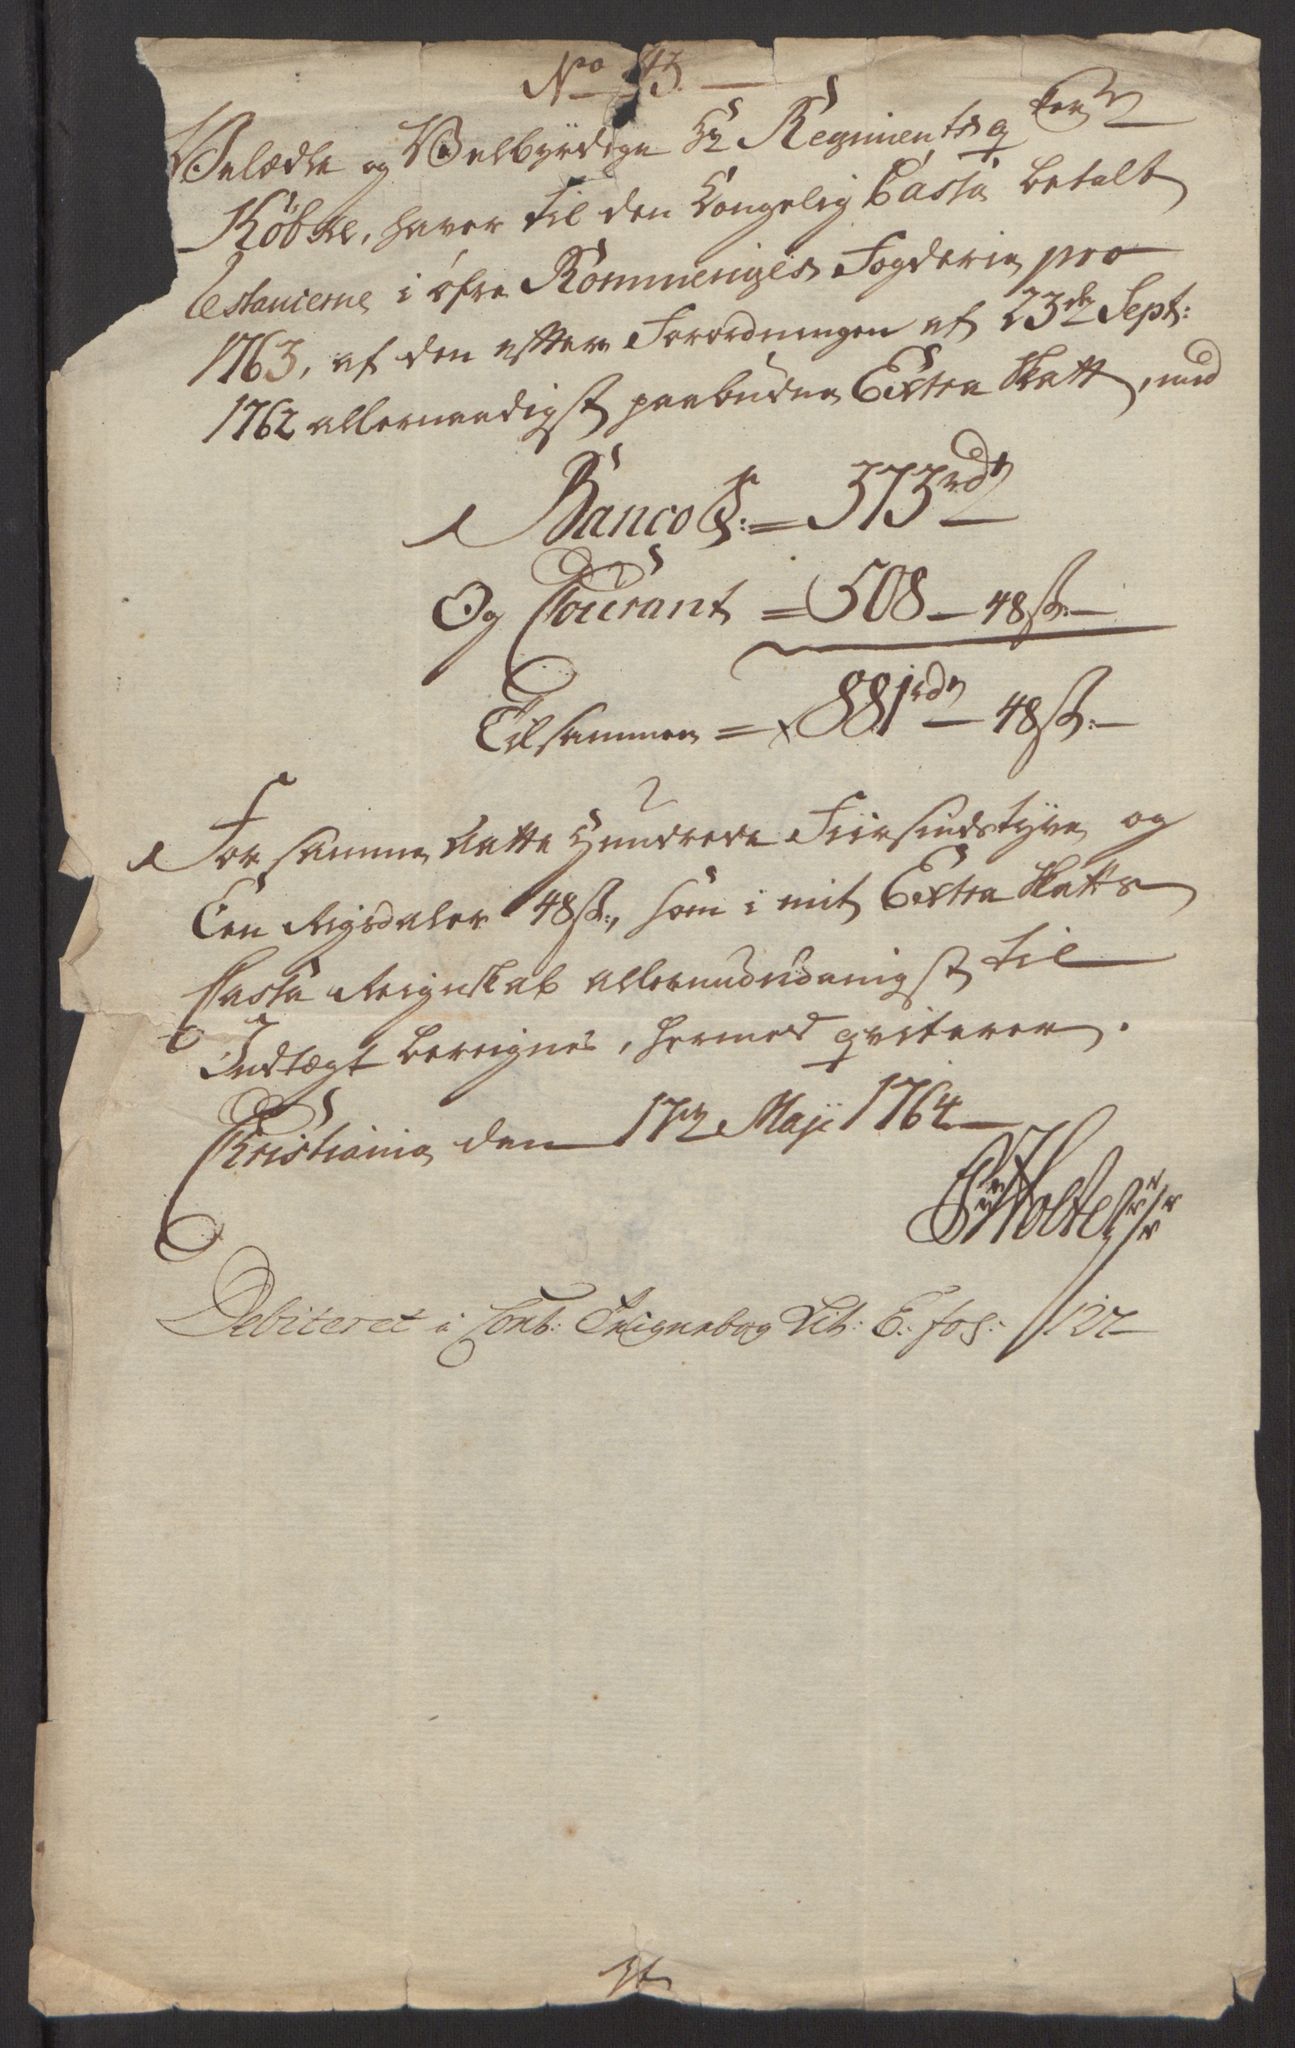 No 43.
Velædle og Velbyrdige Hr Regimentsqvter Mr
Köbke, haver til den Kongelig Cassa betalt
Restancerne i öfre Rommeriges Fogderie pro
1763, af den efter Forordningen af 23de Sept:
1762 allernaadigst paabudne Extra Skatt, med
Banco S: = 373 rdr
Og Courant = 508 – 48 s:
Tilsammen = 881 rdr – 48 s:
For samme Aatte Hundrede Fiirsindstyve og
Een Rigsdaler 48 s:, som i mit Extra Skatts
Cassa Reignskab allerunderdanigst til
Indtægt bereignes, hermed qviteres.
Christiania den 17de Maji 1764
Holte
Debiteret i Cont: Reignebog Lit: E: fol: 122